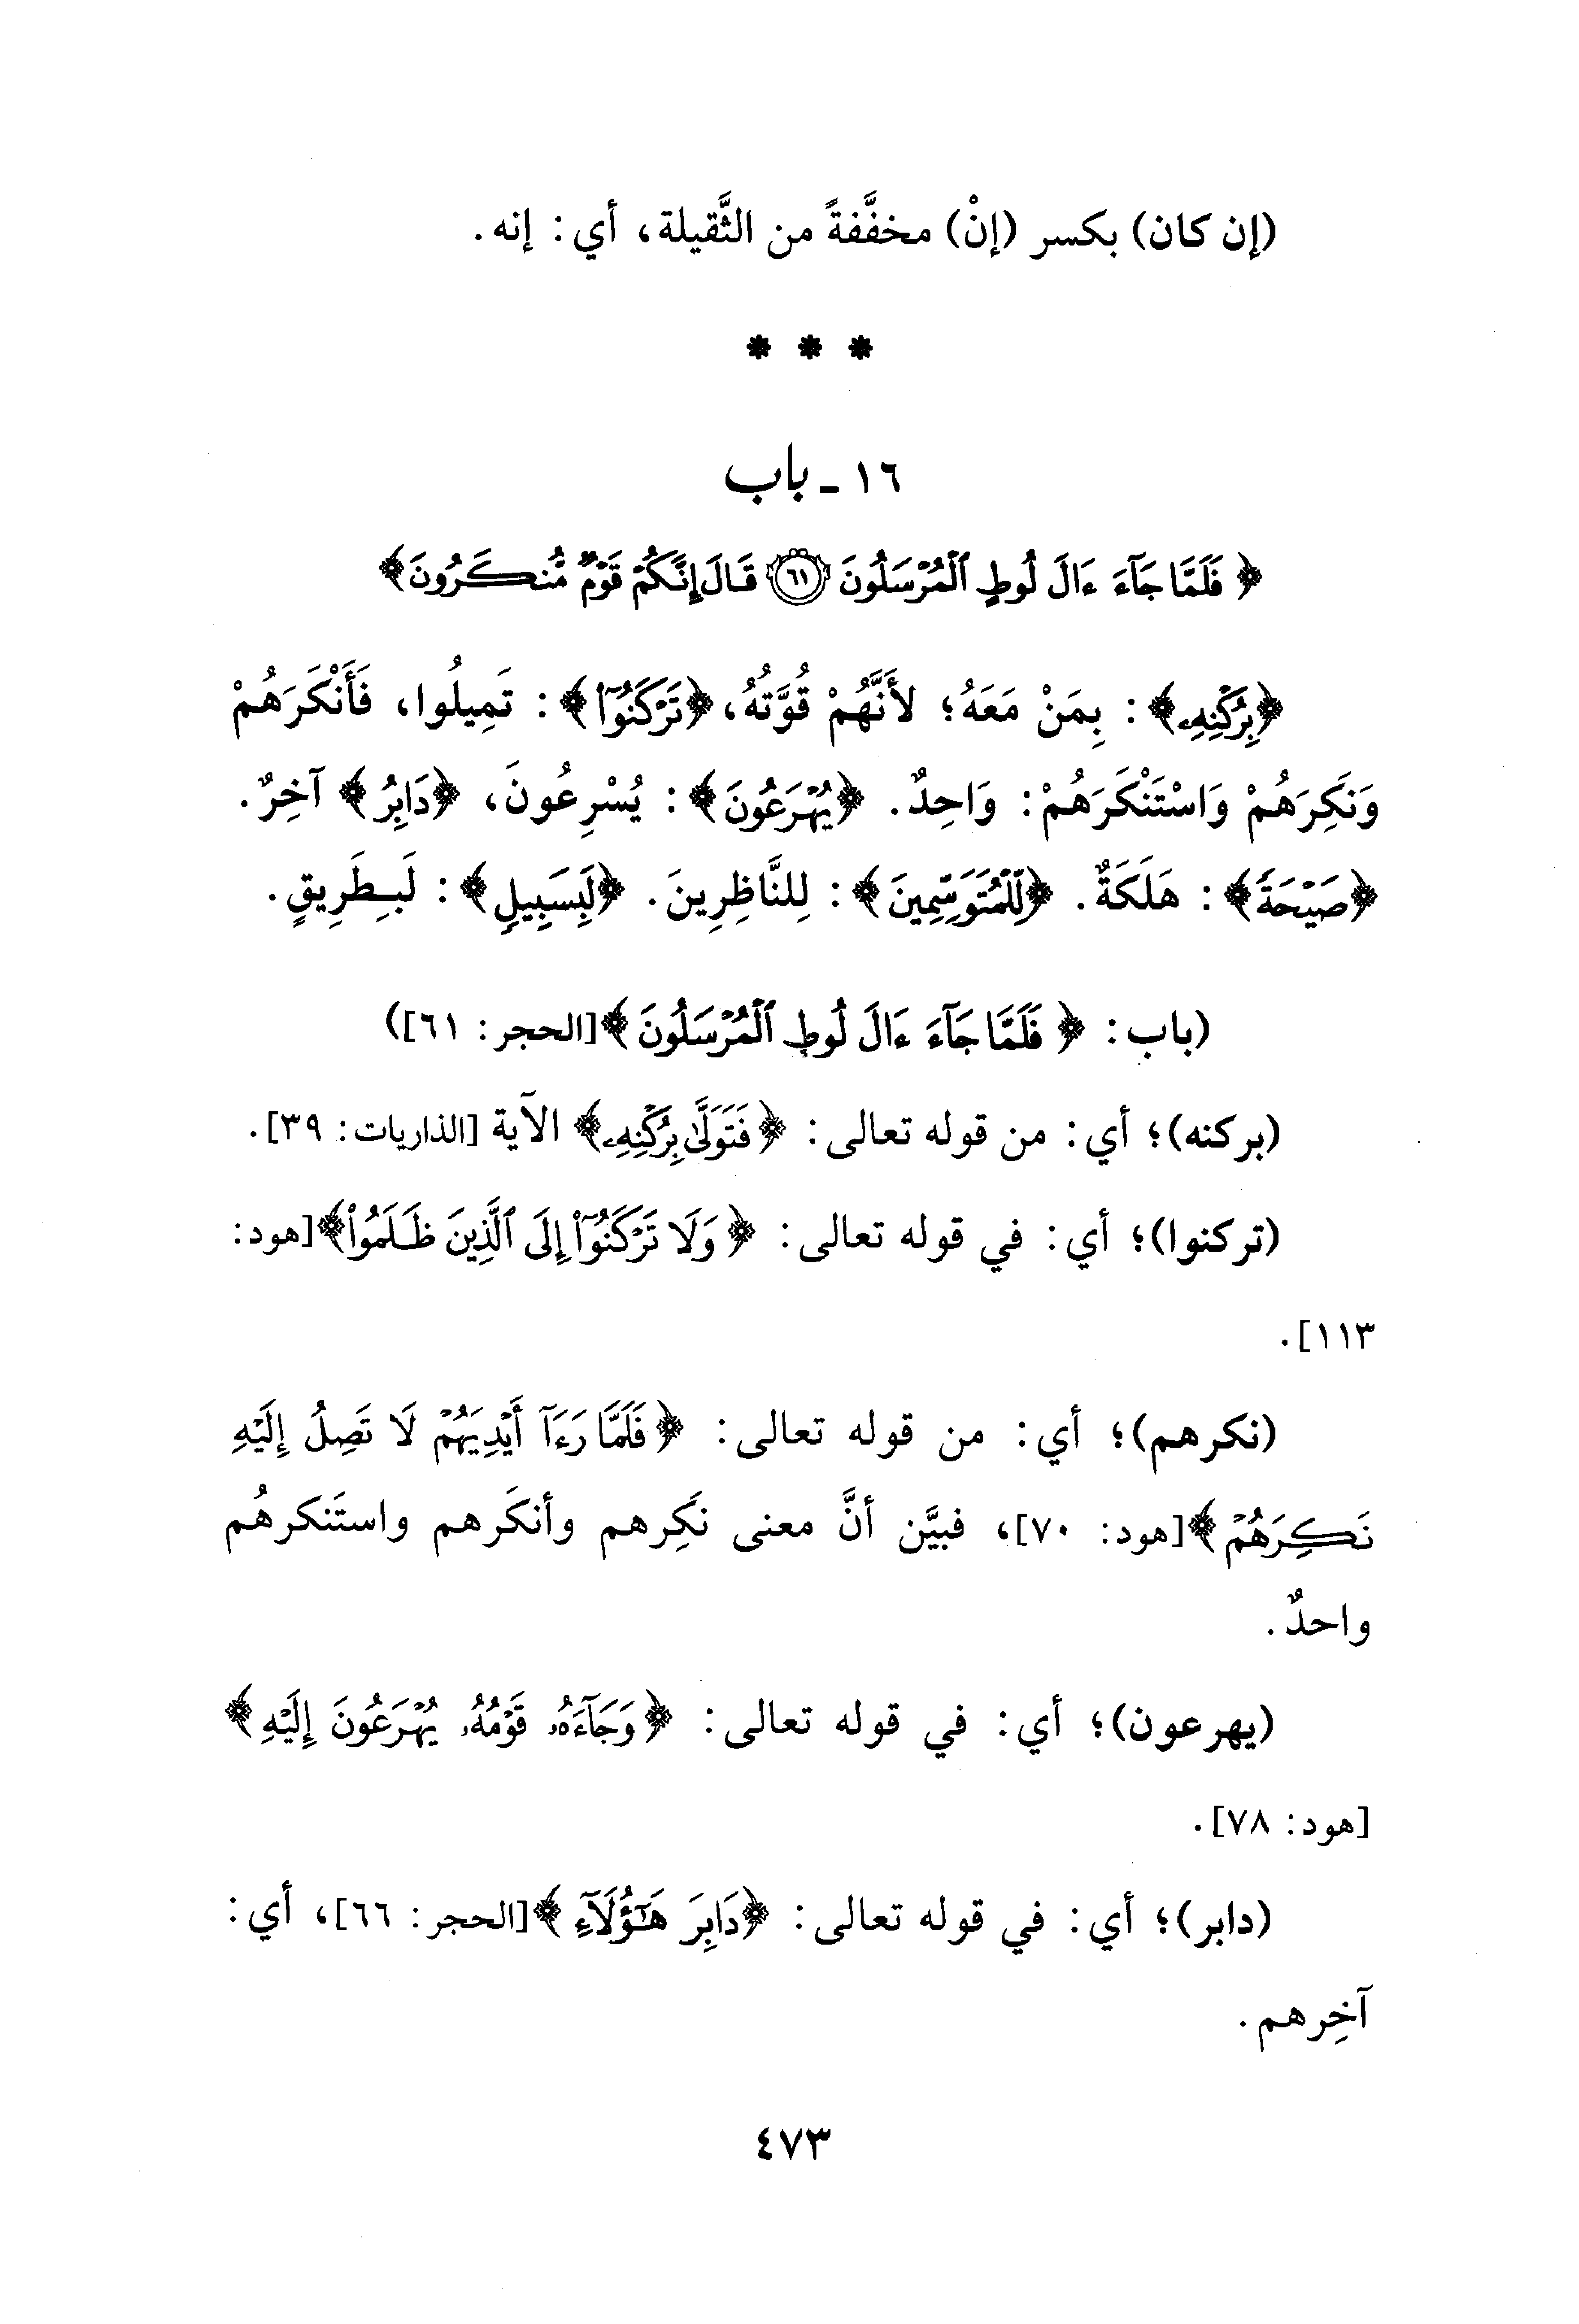 (إن كان) بكسر (إنْ) مخفَّفةً من الثَّقيلة، أي: إنه.
* * *
١٦ - باب
﴿فَلَمَّا جَآءَ ءَالَ لُوطٍ ٱلْمُرْسَلُونَ ۝٦١ قَالَ إِنَّكُمْ قَوْمٌ مُّنكَرُونَ﴾
﴿بِرُكْنِهِۦ﴾: بِمَنْ مَعَهُ؛ لأَنَّهُمْ قُوَّتُهُ، ﴿تَرْكَنُوٓا۟﴾: تَمِيلُوا، فَأَنْكَرَهُمْ
وَنَكِرَهُمْ وَاسْتَنْكَرَهُمْ: وَاحِدٌ. ﴿يُهْرَعُونَ﴾: يُسْرِعُونَ، ﴿دَابِرُ﴾ آخِرٌ.
﴿صَيْحَةً﴾: هَلَكَةٌ. ﴿لِّلْمُتَوَسِّمِينَ﴾: لِلنَّاظِرِينَ. ﴿لَبِسَبِيلٍ﴾: لَبِطَرِيقٍ.
(باب: ﴿فَلَمَّا جَآءَ ءَالَ لُوطٍ ٱلْمُرْسَلُونَ﴾ [الحجر: ٦١])
(بركنه)؛ أي: من قوله تعالى: ﴿فَتَوَلَّىٰ بِرُكْنِهِۦ﴾ الآية [الذاريات: ٣٩].
(تركنوا)؛ أي: في قوله تعالى: ﴿وَلَا تَرْكَنُوٓا۟ إِلَى ٱلَّذِينَ ظَلَمُوا۟﴾ [هود:
١١٣].
(نكرهم)؛ أي: من قوله تعالى: ﴿فَلَمَّا رَءَآ أَيْدِيَهُمْ لَا تَصِلُ إِلَيْهِ
نَكِرَهُمْ﴾ [هود: ٧٠]، فبيَّن أنَّ معنى نَكِرهم وأنكَرهم واستَنكرهُم
واحدٌ.
(يهرعون)؛ أي: في قوله تعالى: ﴿وَجَآءَهُۥ قَوْمُهُۥ يُهْرَعُونَ إِلَيْهِ﴾
[هود: ٧٨].
(دابر)؛ أي: في قوله تعالى: ﴿دَابِرَ هَٰٓؤُلَآءِ﴾ [الحجر: ٦٦]، أي:
آخِرهم.
٤٧٣